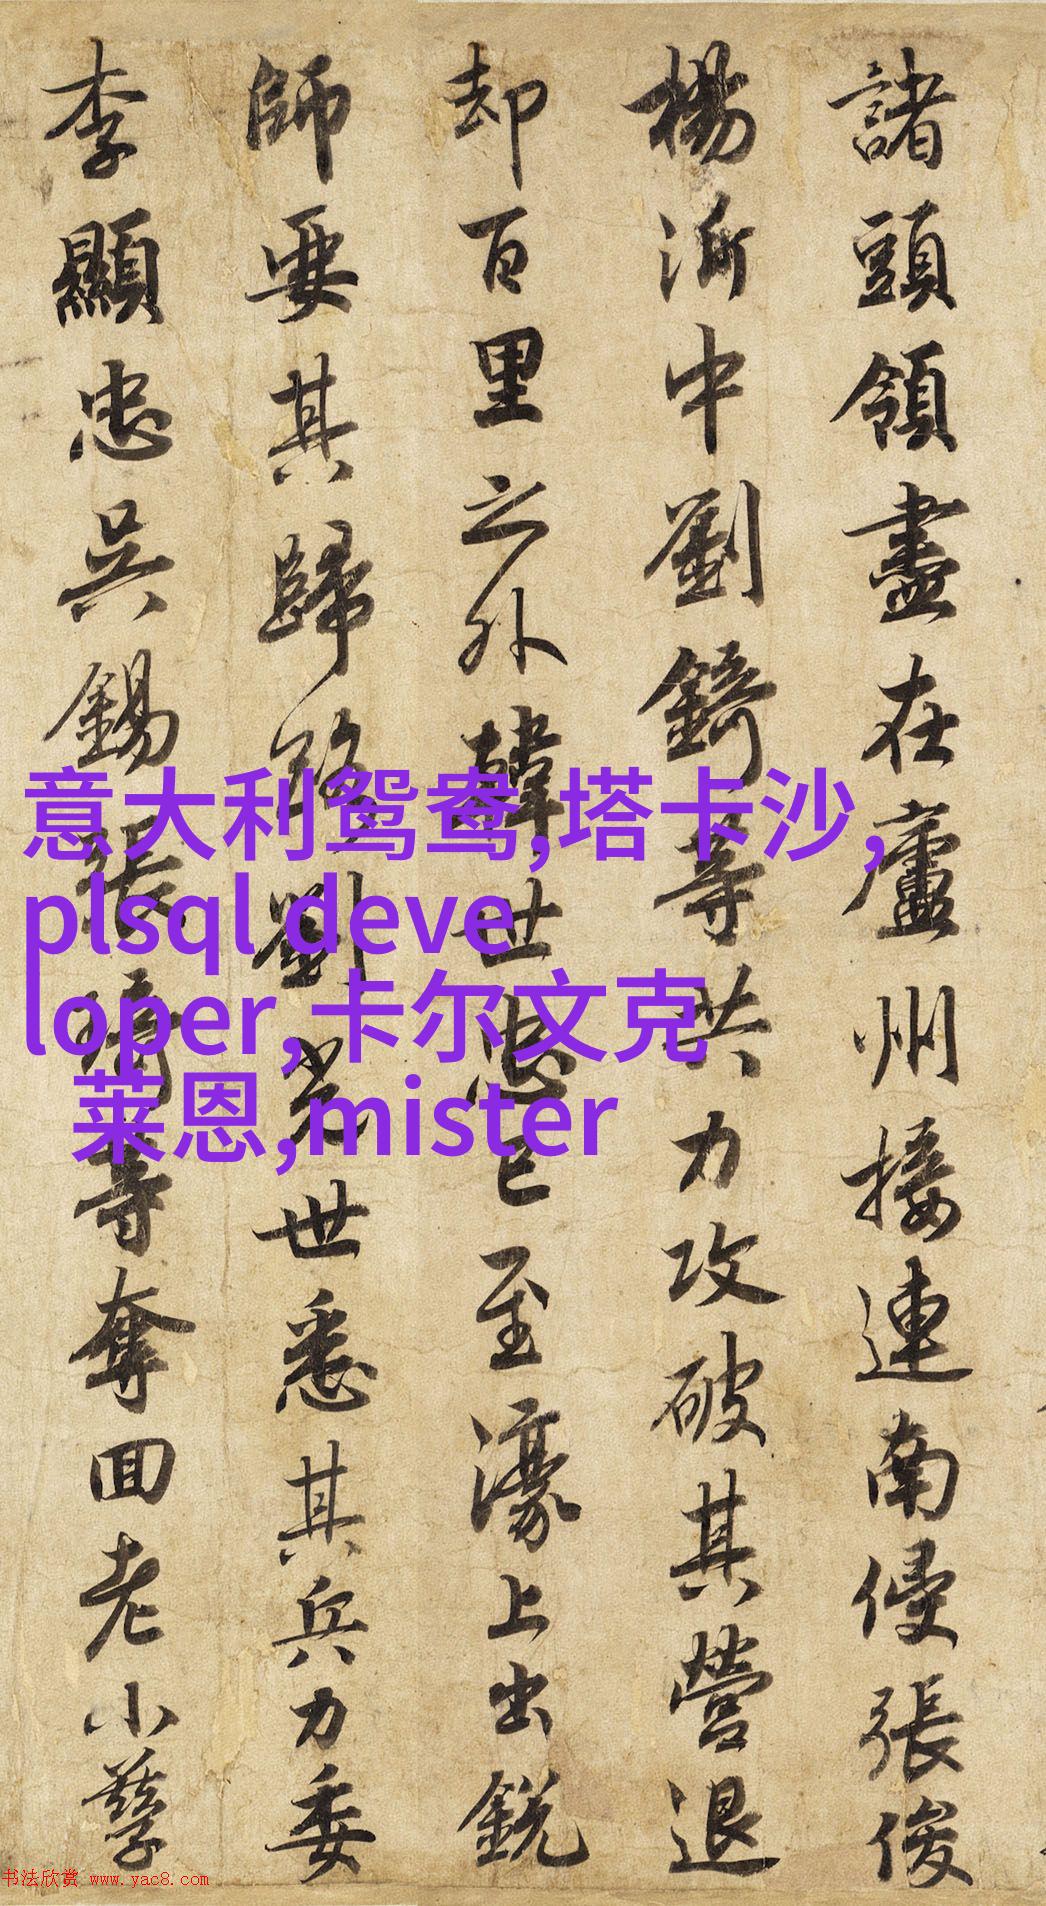 諸頭領盡在廬州接連南侵張俊
楊沂中劉錡等共力攻破其營退
却百里之外韓世忠已至濠上出銳
師要其歸路劉光世悉其兵力委
李顯忠吳錫張琦等奪回老小孳
意大利鸳鸯,塔卡沙,
plsql deve
loper,卡尔文克
莱恩,mister
书法欣赏 www.yac8.com